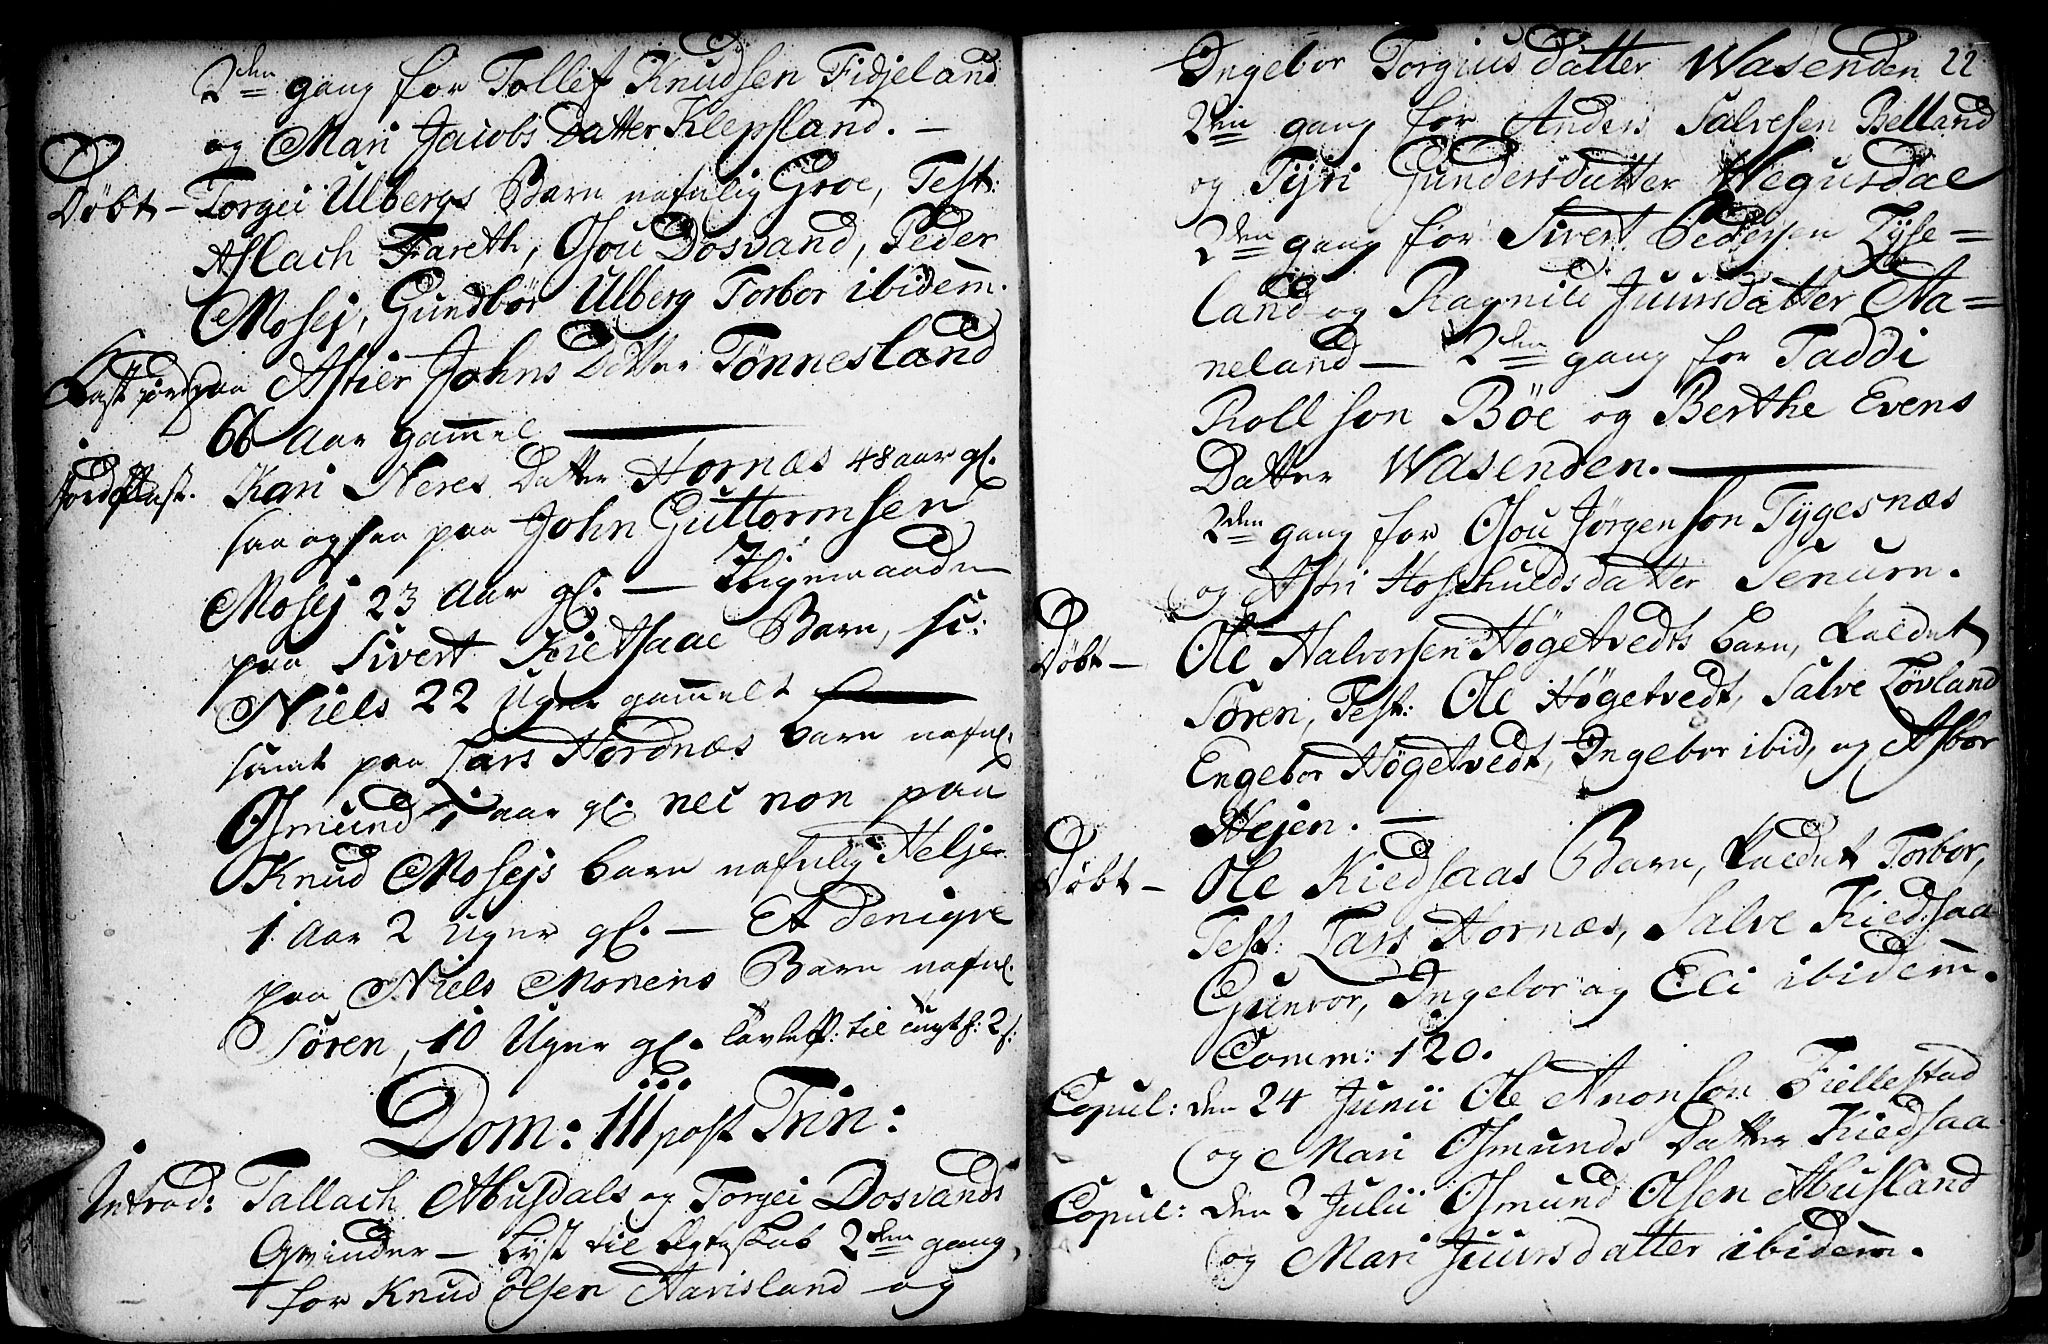 2den gang for Tollef Knudsen Fidjeland
og Mari Jacobs Datter Klepsland. —
Döbt — Torgei Ulbergs Barn nafnlig Groe, Test:
Aslach Fareth, Osou Dosvand, Peder
Mosej, Gundbör Ulberg Torbor ibidem.
Kast jord paa Astier Johns Datter Tönnesland
66 Aar gammel —
Jordfæst. Kari Neres Datter Hornæs 48 aar gl.
saa ogsaa paa John Guttormsen
Mosej 23 Aar gl. — Iligemaade
paa Sivert Kietsaae Barn, sc:
Niels 22 Uger gammelt
samt paa Lars Hordnæs barn nafnl.
Osmund 1 aar gl. nec non paa
Knud Mosejs barn nafnlig Helje
1 Aar 2 Uger gl. — Et deniqve
paa Niels Monens Barn nafnl.
Sören, 10 Uger gl. til 2 s:
Dom: III post Trin:
Introd: Tallach Abusdals og Torgei Dosvands
Qvinder — Lyst til Ægteskab 2den gang,
for Knud Olsen Aavisland — og
22
Ingebor Torgius datter Wasenden
2den gang for Anders Salvesen Belland
og Tyri Gundersdatter Wegusdal
2den gang for Sivert Pedersen Lyse=
land og Ragnild Juursdatter Aa=
neland — 2den gang for Taddi
Rollson Böe og Berthe Evens
Datter Wasenden. —
2den gang for Osou Jörgenson Tygesnæs
og Astri Hoskulds datter Senum.
Döbt — Ole Halvorsen Högetvedts barn, kaldet
Sören, Test: Ole Högetvedt, Salve Lövland
Engebor Högetvedt, Ingebor ibid, og Asbor
Hejen. —
Döbt — Ole Kiedsaas Barn, kaldet Torbor,
Test: Lars Hornæs, Salve Kiedsaa
Gunvor, Ingebor og Eli ibidem.
Comm: 120.
Copul: den 24 Junii Ole Anonson Fiellestad
og Mari Osmunds Datter Kiedsaa
Copul: den 2 Julii Osmund Olsen Abusland
og Mari Juursdatter ibidem.